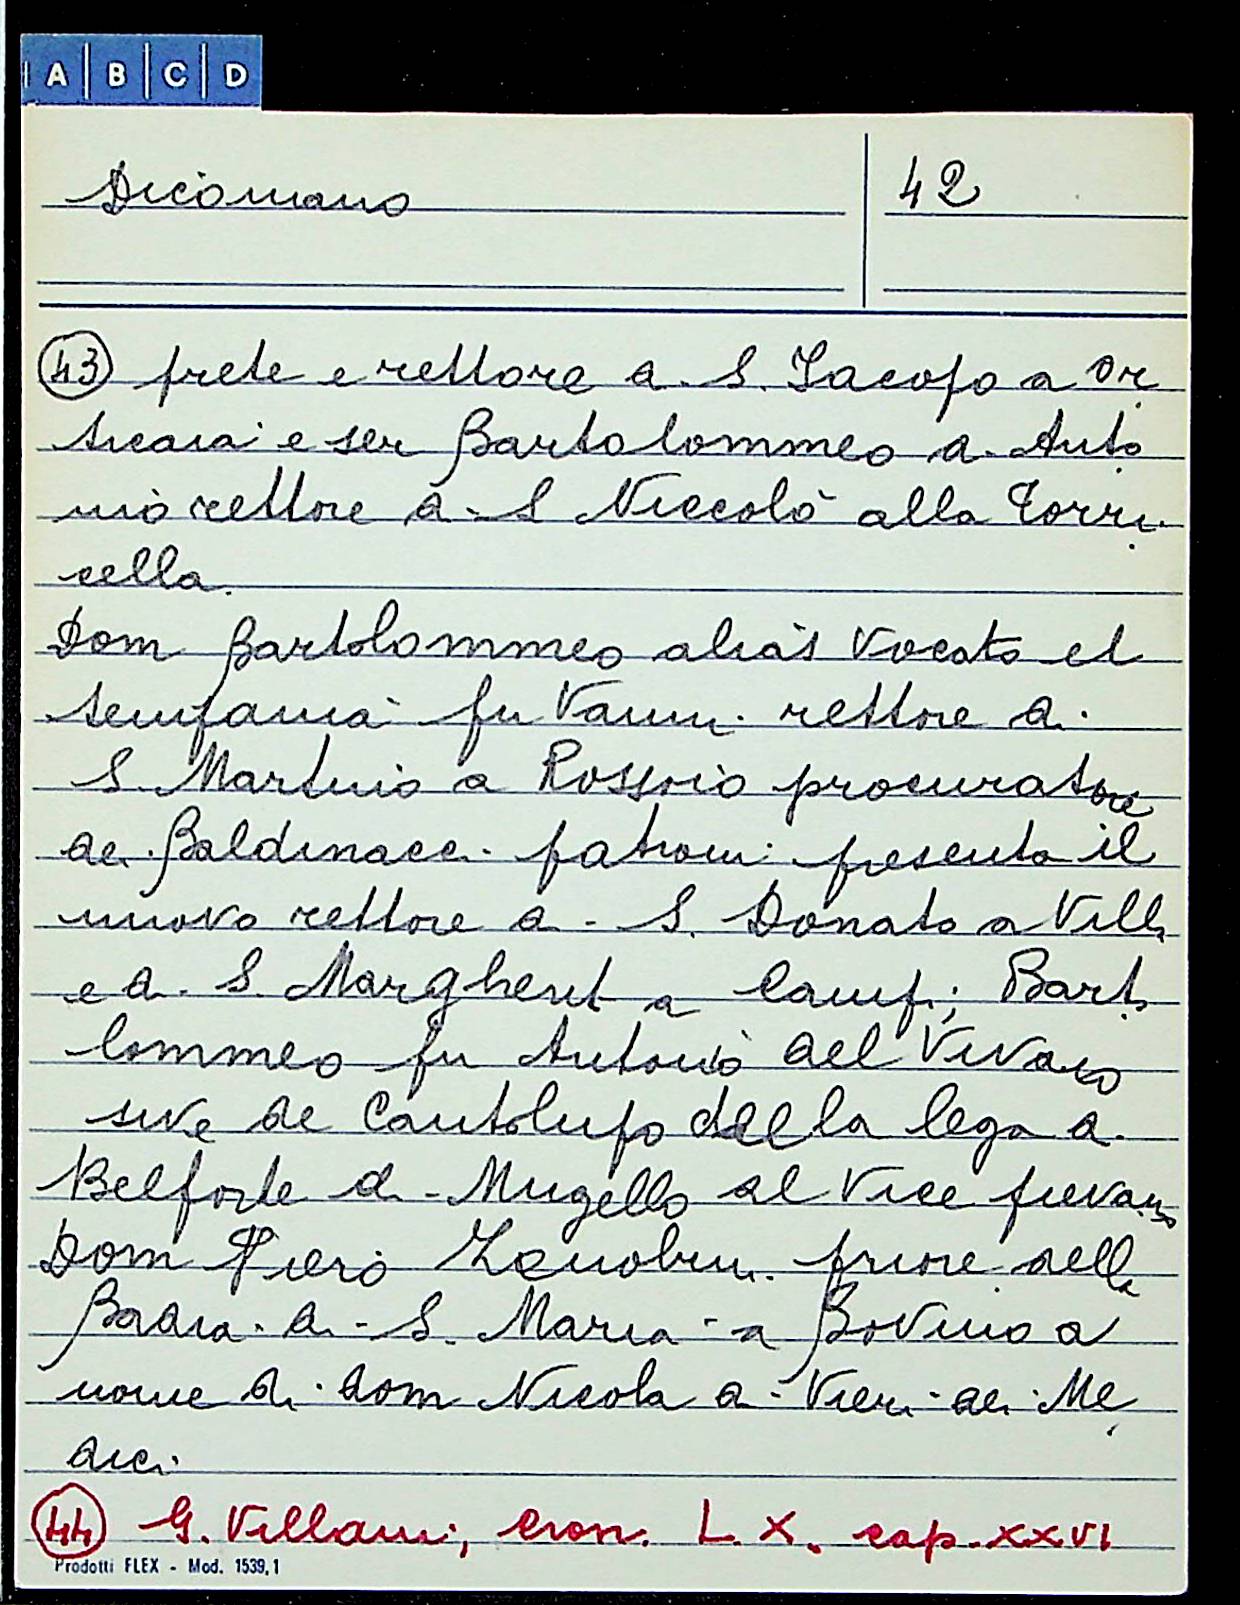 A B C D
Dicomano 42
43 prete e rettore di S. Iacopo a Or
ticaia e ser Bartolommeo di Anto
nio rettore di S Niccolò alla Torri
cella.
Dom Bartolommeo alias Vocato el
fu Vanni rettore di
S. Martino a Rossoio procuratore
dei Baldinacci patroni presenta il
nuovo rettore di S. Donato a Villa
e di S. Margherit a Campi; Barto
lommeo fu Antonio del Vivaio
sive de Cantolupo della lega di
Belforte di Mugello al Vice pievano
Dom Piero Zenobini priore della
Badia di S. Maria a Bovino a
nome di dom Nicola di Vieri dei Me
dici.
44 G. Villani; cron. L. X. cap. XXVI
Prodotti FLEX - Mod. 1539,1